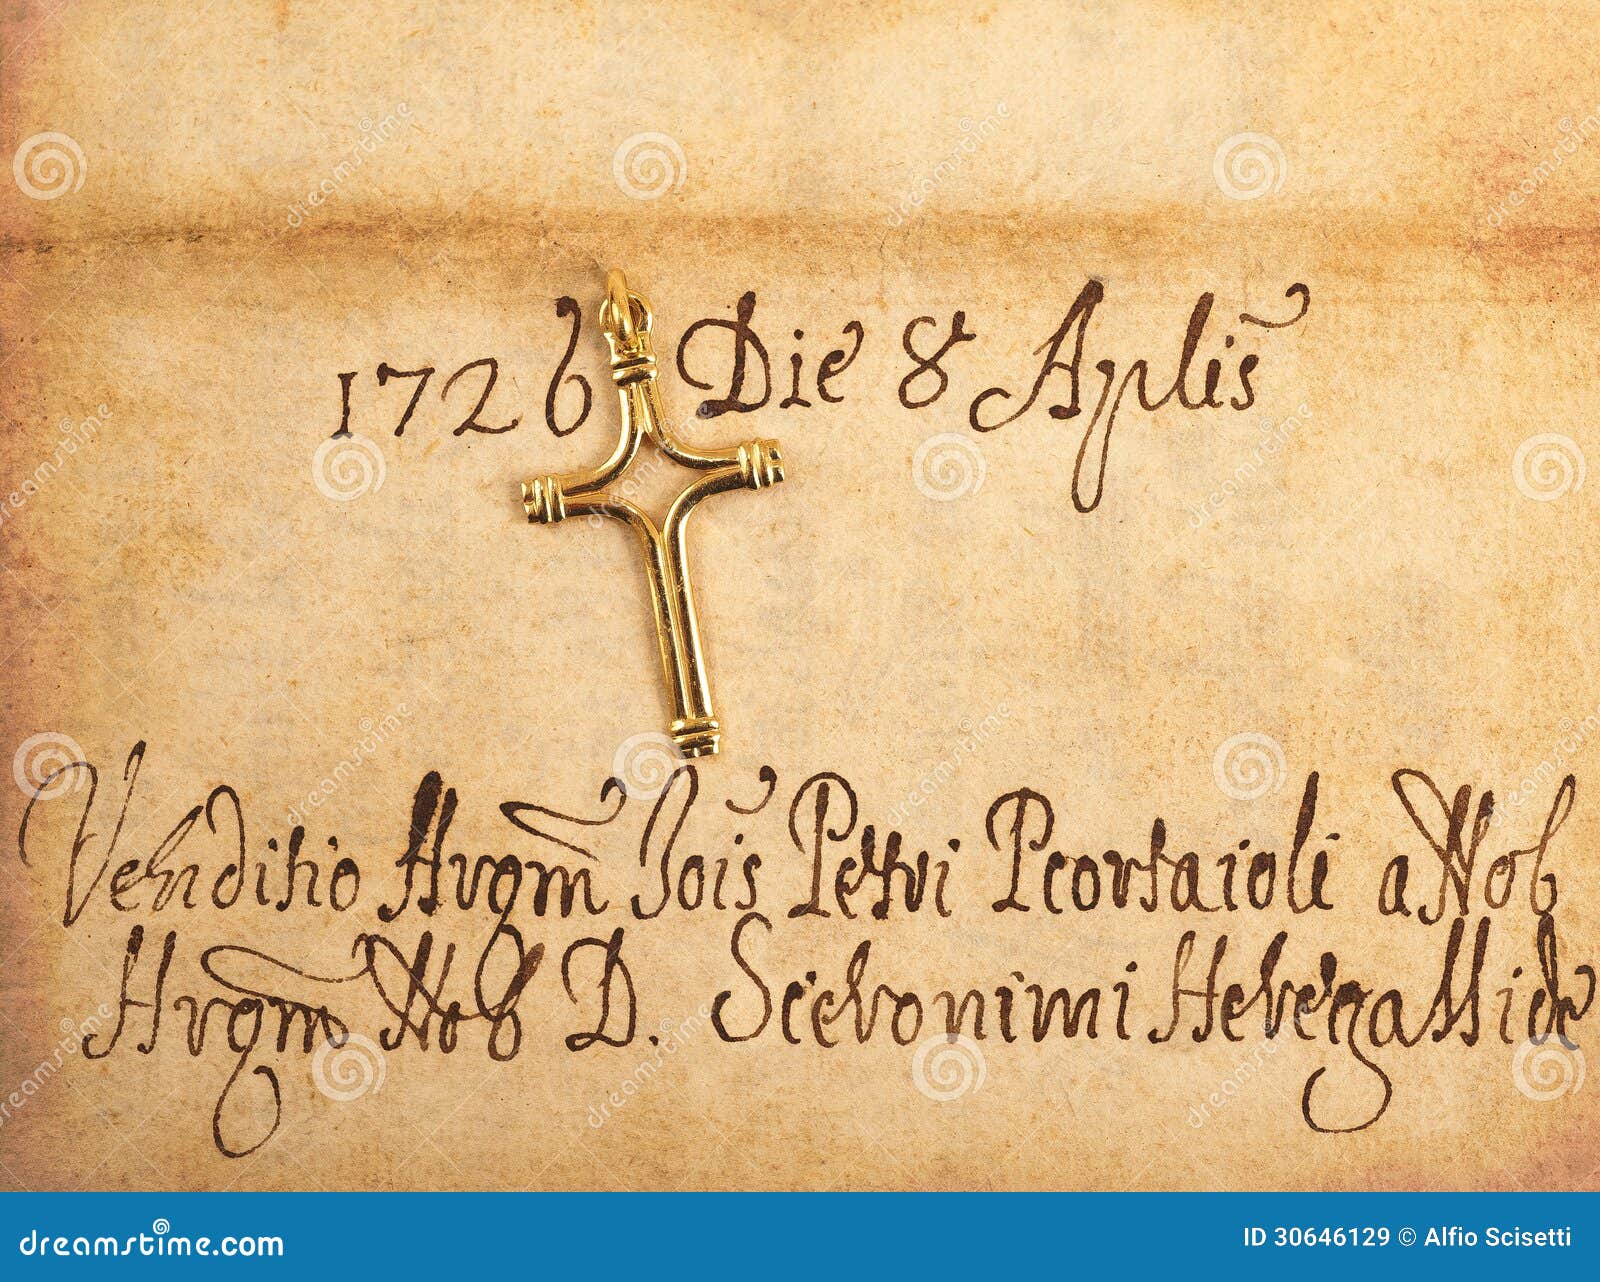 1726 Die 8 Aplis
Venditio Argm Jois Petri Peortaioli a Nob
Argm Nob D. Scieronimi
dreamstime.com
ID 30646129 © Alfio Scisetti